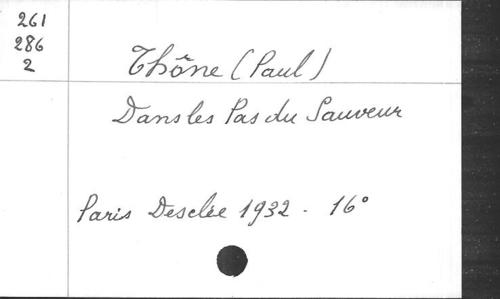 261
286
2
Thône (Paul)
Dans les Pas du Sauveur
Paris Desclée 1932 - 16°